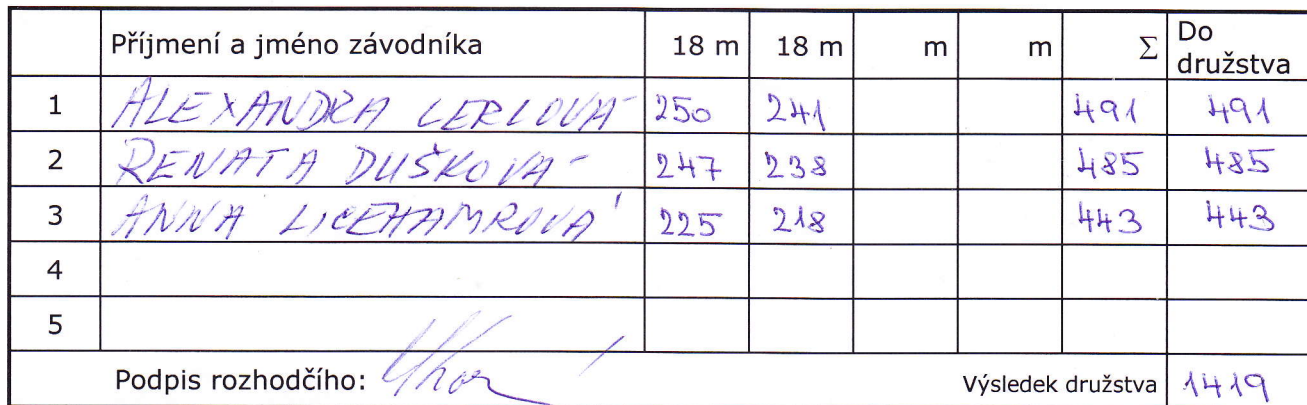 Příjmení a jméno závodníka 18 m 18 m m m Σ Do družstva
1 ALEXANDRA LERLOVÁ 250 241 491 491
2 RENATA DUŠKOVÁ 247 238 485 485
3 ANNA 225 218 443 443
4
5
Podpis rozhodčího: Výsledek družstva 1419